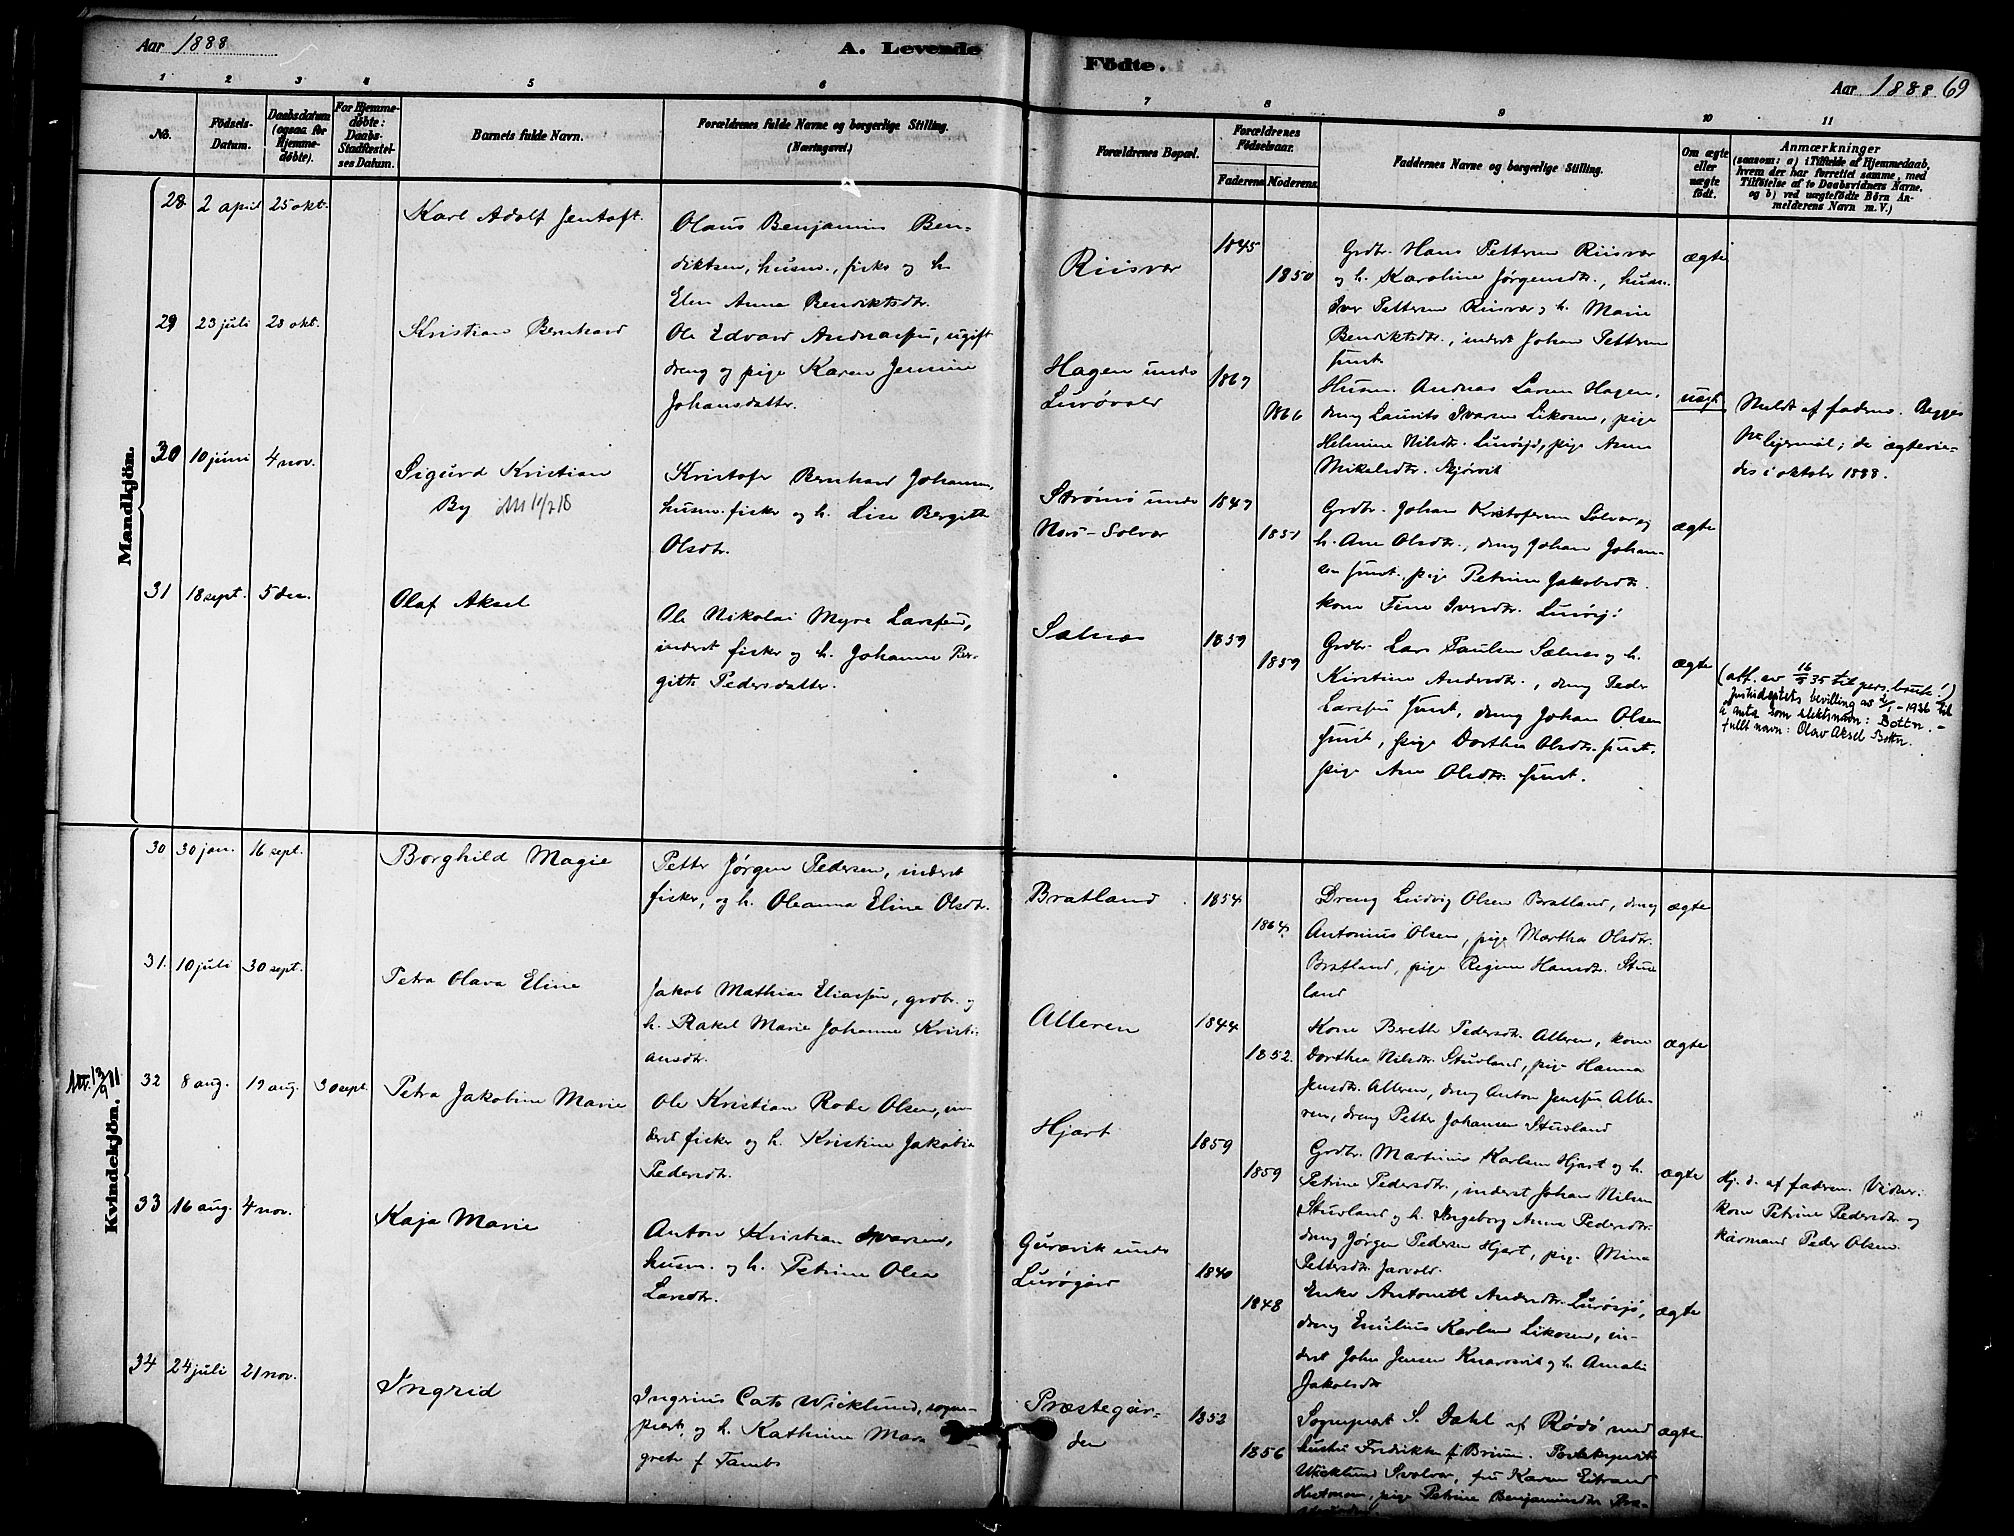 Aar 1888
A. Levende
Födte.
Aar 1888 69
1 2 3 4 5 6 7 8 9 10 11
No.
Födsels-
Datum.
Daabsdatum
(ogsaa for
Hjemme-
döbte).
For Hjemme-
döbte:
Daabs-
Stadfæstel-
ses Datum.
Barnets fulde Navn.
Forældrenes fulde Navne og borgerlige Stilling.
(Næringsvei.)
Forældrenes Bopæl.
Forældrenes
Födselsaar.
Faderens. Moderens.
Faddernes Navne og borgerlige Stilling.
Om ægte
eller
uægte
født.
Anmærkninger
(saasom: a) i Tilfælde af Hjemmedaab,
hvem der har forrettet samme, med
Tilföielse af to Daabsvidners Navne,
og b) ved uægtefödte Börn An-
melderens Navn m. V.)
Mandkjön.
28 2 april 25 okt.
Karl Adolf Jentoft.
Olaus Benjamin Ben-
diktsen, husm., fisker og h.
Elen Anna Bendiktsdtr.
Riisvær
1845
1850
Grdbr. Hans Pettersen Riisvær
og h. Karoline Jørgensdtr., husm.
Iver Pettersen Riisvær og h. Marie
Bendiktsdtr., inderst Johan Pettersen
smst.
ægte
29 23 juli 28 okt.
Kristian Bernhard
Ole Edvard Andreassen, ugift
dreng og pige Karen Jensine
Johansdatter.
Hagen under
Lurøvold
1867
1866
Husm. Andreas Larsen Hagen,
dreng Laurits Ivarsen Likosen, pige
Helmine Nilsdtr. Lurøsjø, pige Anna
Mikelsdtr.
uægt.
Meldt af faderen. Begges
1ste leiermål; de ægtevie-
des i oktober 1888.
30 10 juni 4 nov.
Sigurd Kristian
By
Kristofer Bernhard Johansen,
husm. fisker og h. Lise Bergitte
Olsdtr.
Strømø under
Nord-Solvær
1847
1851
Grdbr. Johan Kristofersen Solvær og
h. Ane Olsdtr., dreng Johan Johan-
sen smst. pige Petrine Jakobsdtr.
kone Fine Iversdtr. Lurøsjø!
ægte
31 18 sept. 5 des.
Olaf Aksel
Ole Nikolai Myre Larssen,
inderst fisker og h. Johanna Ber-
gitte Pedersdatter.
Selnes
1859
1859
Grdbr. Lars Paulsen Selnes og h.
Kirstine Andersdtr., dreng Peder
Larssen smst, dreng Johan Olsen
smst, pige Dorthea Olsdtr. smst.
pige Ane Olsdtr. smst.
ægte
(att. av 16/5 35 til pers. bruk!)
Justisdeptets bevilling av 2/1-1936 til
å anta som slektsnavn: Botten. -
fullt navn: Olav Aksel Botten.
Kvindekjön.
30 30 jan. 16 sept.
Borghild Magie
Petter Jørgen Pedersen, inderst
fisker, og h. Oleanna Eline Olsdtr.
Bratland
1854
1864.
Dreng Ludvig Olsen Bratland, dreng
Antonius Olsen, pige Martha Olsdtr.
Bratland, pige Regine Hansdtr. Stuv-
land
ægte
31. 10 juli 30 sept.
Petra Olava Eline
Jakob Mathias Eliassen, grdbr. og
h. Rakel Marie Johanne Kristi-
ansdtr.
Alleren
1844
1852.
Kone Bereth Pedersdtr. Alleren, kone
Dorthea Nilsdtr. Stuvland, pige Hanna
Jensdtr. Alleren, dreng Anton Jenssen Alle-
ren, dreng Petter Johansen Stuvland
ægte
32 8 aug. 19 aug. 30 sept.
Petra Jakobine Marie
Ole Kristian Rode Olsen, in-
derst fisker og h. Kristine Jakobia
Pedersdtr.
Hjart
1859
1859
Grdbr. Martinus Karlsen Hjart og h.
Petrine Pedersdtr., inderst Johan Nilsen
Stuvland og h. Ingeborg Anna Pedersdtr.
dreng Jørgen Pedersen Hjart, pige Mina
Pettersdtr. Jarvold.
ægte
Hj. d. af faderen. Vidner:
kone Petrine Pedersdtr. og
kårmand Peder Olsen.
33 16 aug. 4 nov.
Kaja Marie
Anton Kristian Ivarsen,
husm. og h. Petrine Olea
Larsdtr.
Guravik under
Lurøgård
1840
1848
Enke Antonette Andersdtr. Lurøsjø,
dreng Emilius Karlsen Likosen, in-
derst John Jensen Knarosvik og h. Amalie
Jakobsdtr
ægte
34 24 juli 21 nov.
Ingrid
Ingvius Cato Wicklund, sogne-
prest og h. Kathrine Mar-
grete f Tambs
Præstegår-
den
1852
1856
Sogneprest S. Dahl af Rødø med
hustru Fredrikke f Bruun.
Wicklund Svolvær, fru Karen
pige Petrine Benjaminsdtr.
ægte